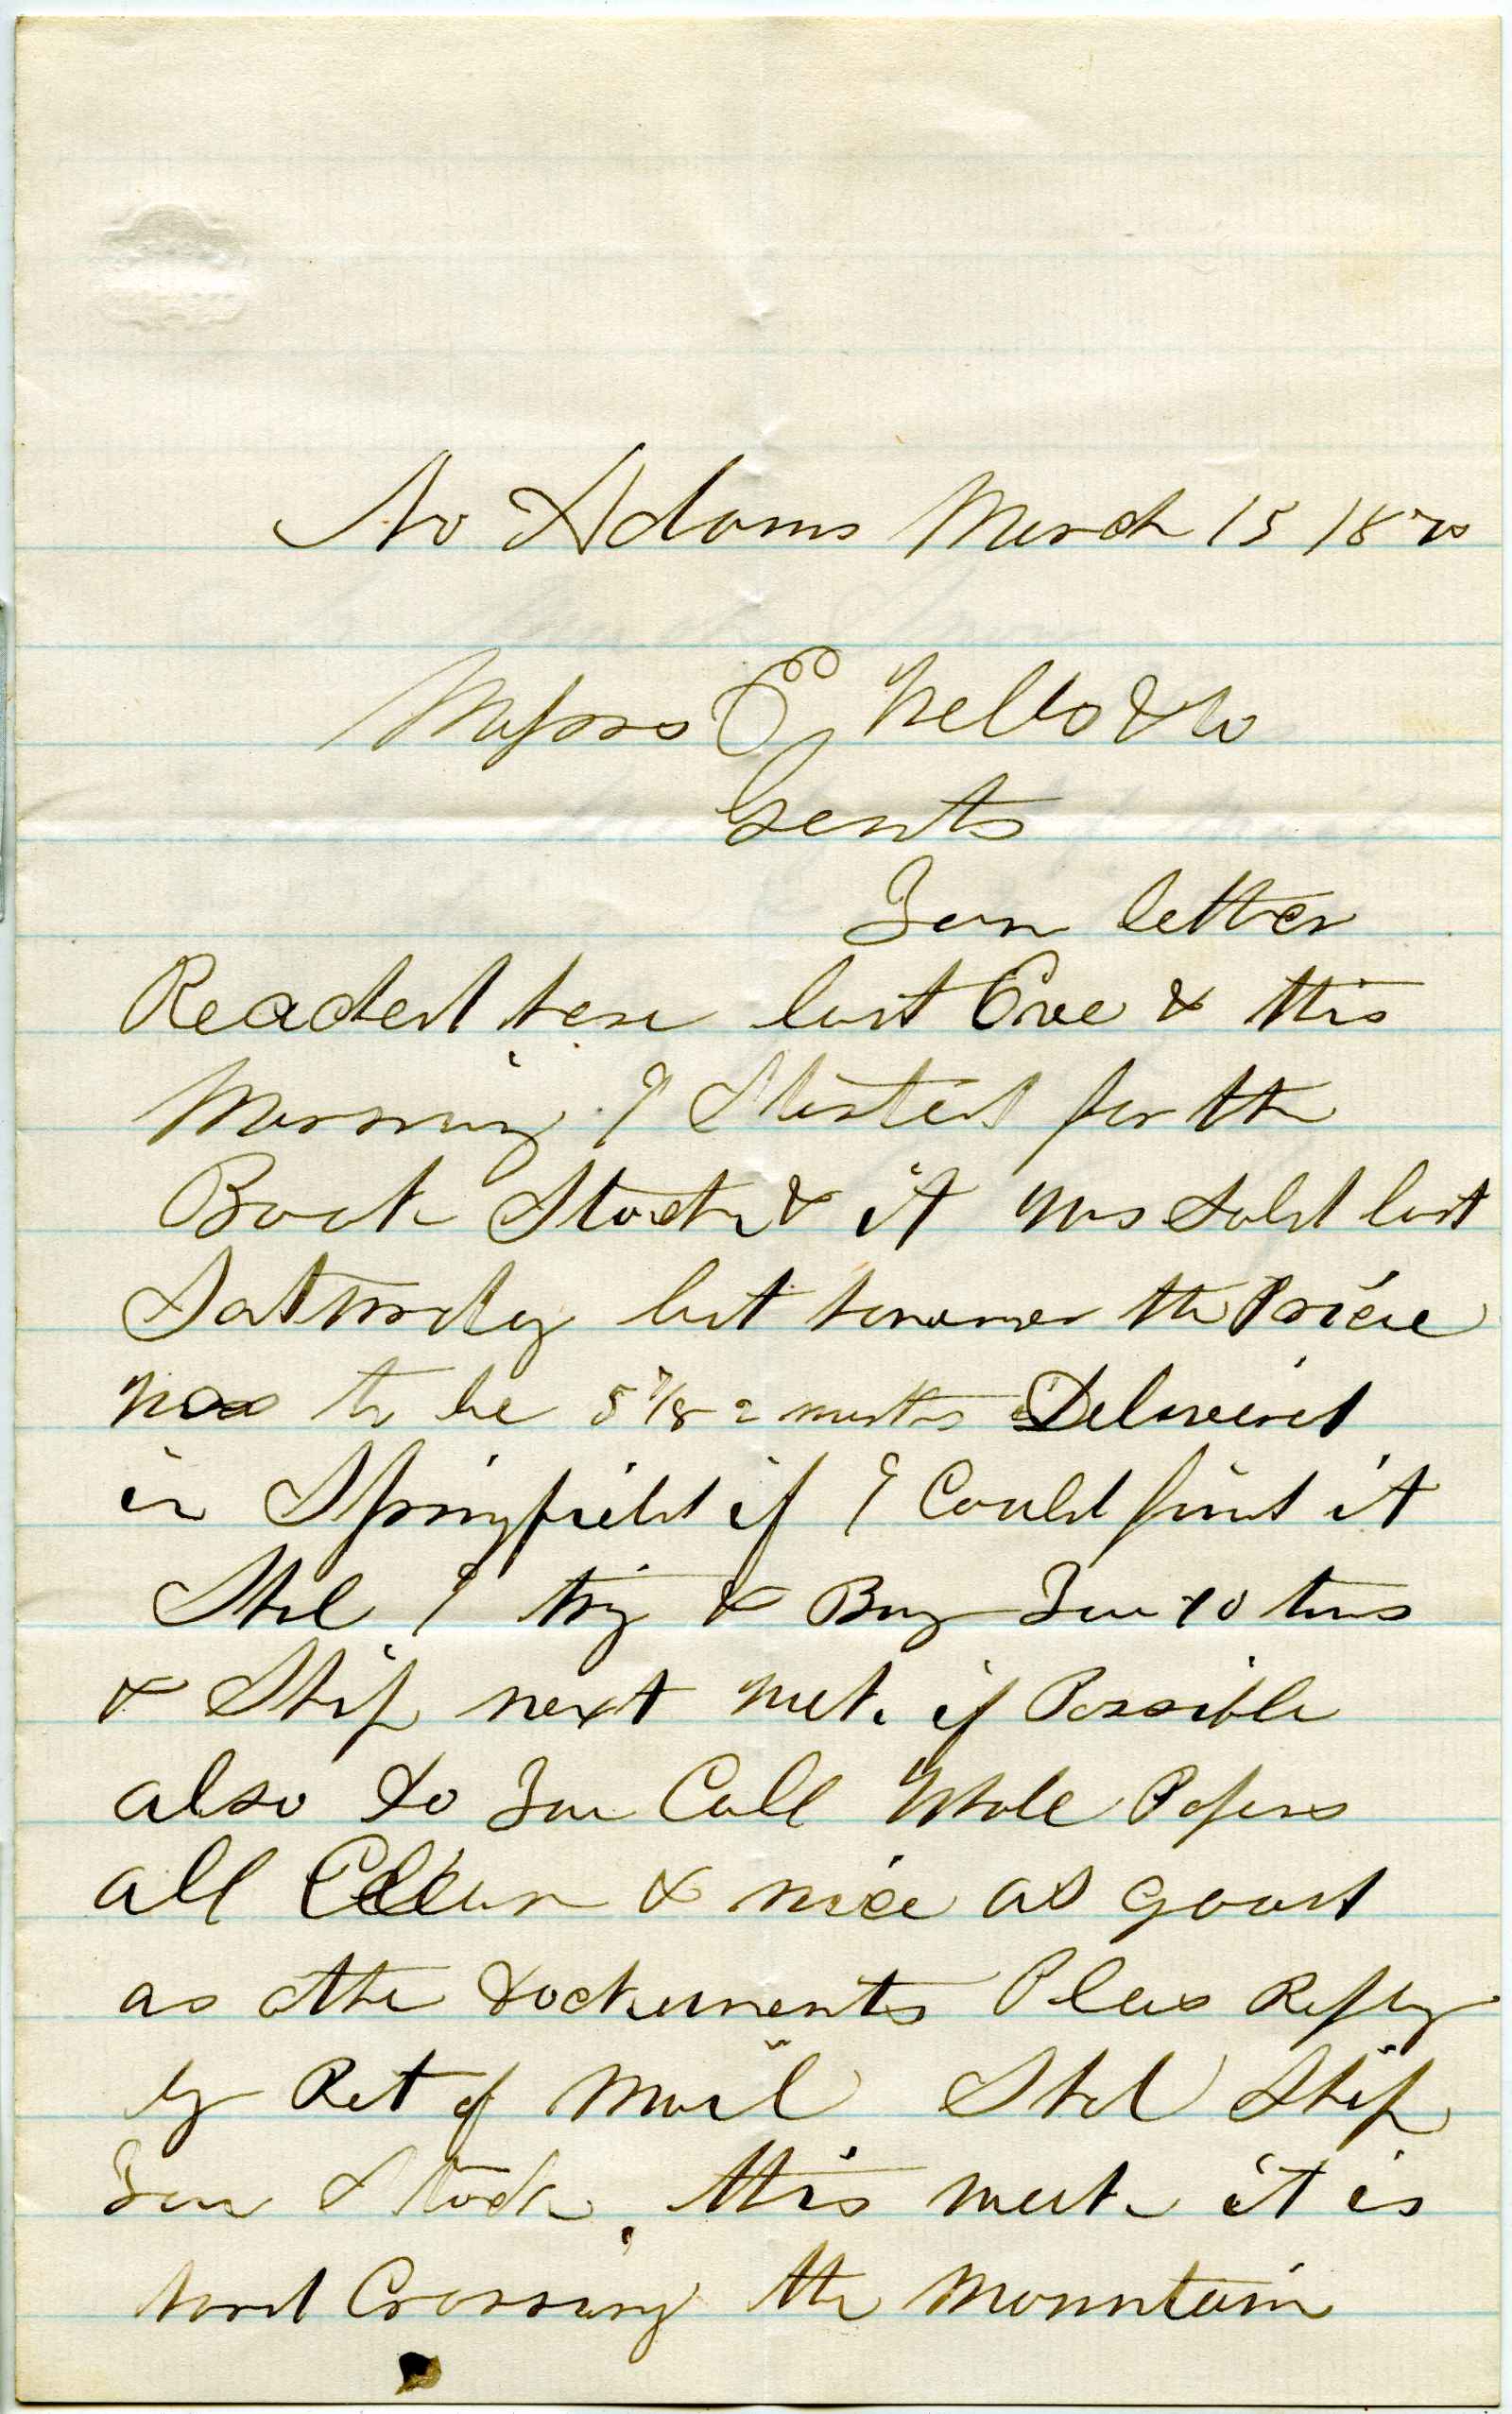 No Adams March 15 1870
Messrs E Wells & Co
Gents
Your letter
Reached here last Eve & this
Morning I Started for the
Book Stock & it was Sold last
Saturday but however the Price
was to be 5 7/8 2 months Delivered
in Springfield if I Could find it
Shel I try & Buy You 10 tons
& Ship next week if Possible
also do You Call Whole Papers
all Clean & nice as good
as the dockuments Pleas Reply
by Ret of Mail Shel Ship
Your Stock this week it is
hard Crossing the Mountain